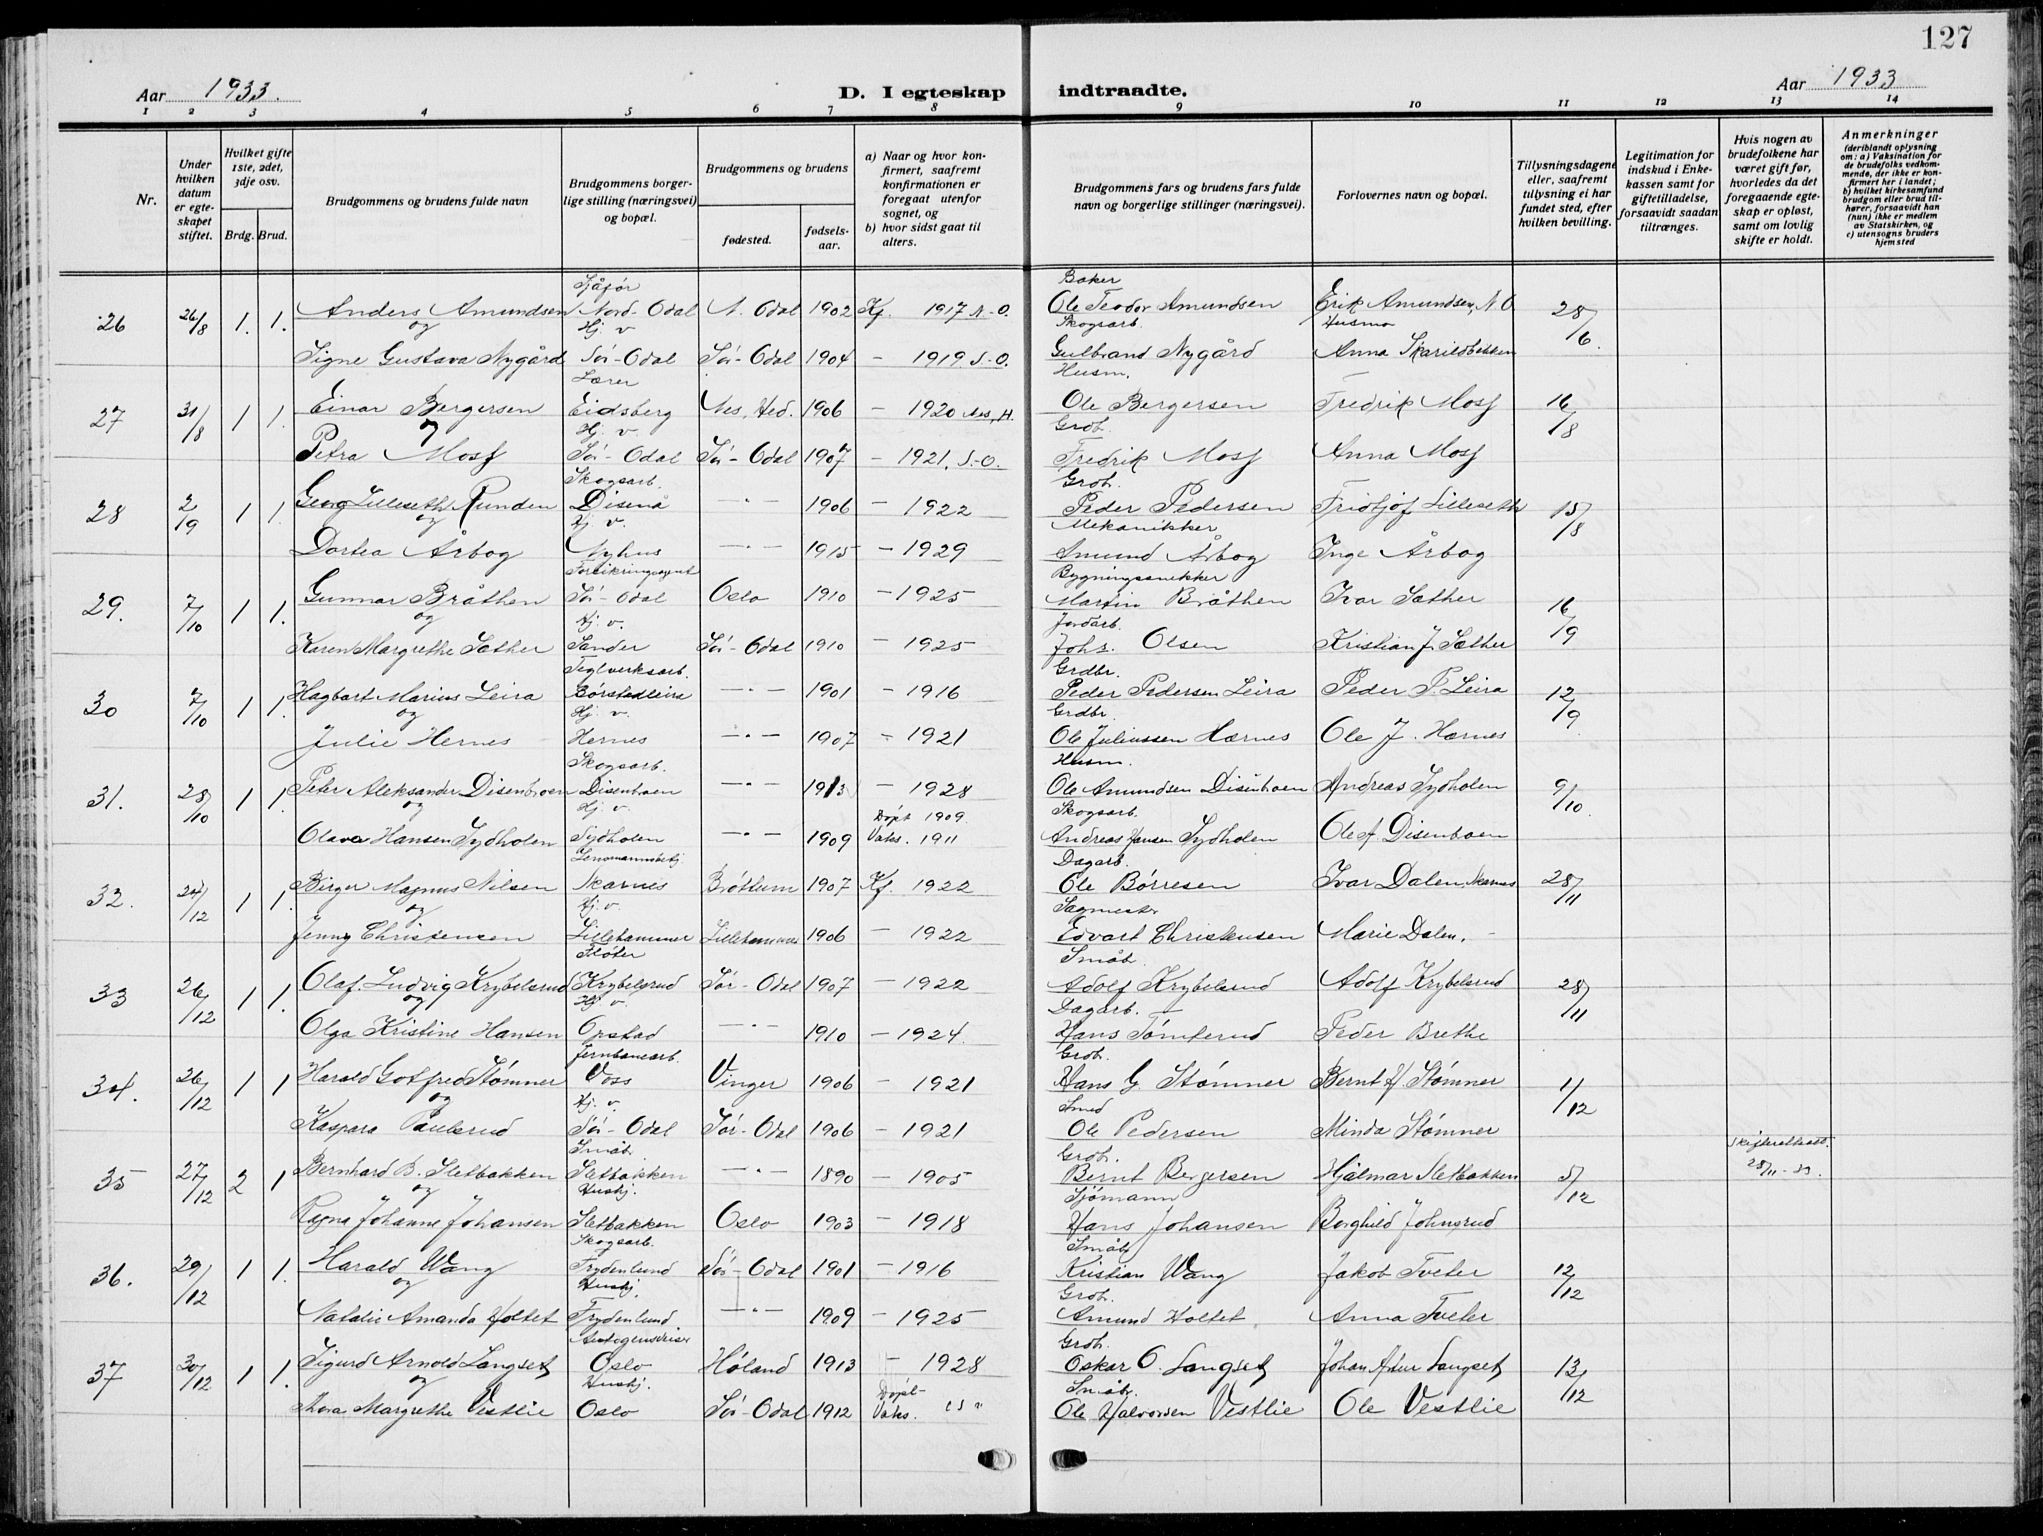 127
Aar 1933. D. I egteskap indtraadte. Aar 1933
1 2 3 4 5 6 7 8 9 10 11 12 13 14
Nr.
Under hvilken datum er egteskapet stiftet.
Hvilket gifte 1ste, 2det, 3dje osv.
Brdg. Brud.
Brudgommens og brudens fulde navn
Brudgommens borgerlige stilling (næringsvei) og bopæl.
Brudgommens og brudens
fødested.
fødselsaar.
a) Naar og hvor konfirmert, saafremt konfirmationen er foregaat utenfor sognet, og
b) hvor sidst gaat til alters.
Brudgommens fars og brudens fars fulde navn og borgerlige stillinger (næringsvei).
Forlovernes navn og bopæl.
Tillysningsdagene eller, saafremt tillysning ei har fundet sted, efter hvilken bevilling.
Legitimation for indskud i Enkekassen samt for giftetilladelse, forsaavidt saadan tiltrænges.
Hvis nogen av brudefolkene har været gift før, hvorledes da det foregaaende egteskap er opløst, samt om lovlig skifte er holdt.
Anmerkninger (deriblandt oplysning om: a) Vaksination for de brudefolks vedkommende, der ikke er konfirmert her i landet; b) hvilket kirkesamfund brudgom eller brud tilhører, forsaavidt han (hun) ikke er medlem av Statskirken, og c) utensogns bruders hjemsted
Sjåfør Baker
26 26/8 1. 1. Anders Amundsen Nord-Odal N. Odal 1902 Kf. 1917 N-O. Ole Teodor Amundsen Erik Amundsen, N.O 28/6.
og Hj. v Skogsarb. Husmo
Signe Gustava Nygård Sör-Odal Sör-Odal 1904 - 1919. S-O. Gulbrand Nygård Anna Skarildbekken
Lærer Husm.
27 31/8 1 1. Einar Bergersen Eidsberg Nes, Hed. 1906 - 1920 Nes, H. Ole Bergersen Fredrik Moss 16/8
og Hj. v. Grdb.
Petra Moss Sör-Odal Sör-Odal 1907 - 1921. S-O. Fredrik Moss Anna Moss
Skogsarb. Grdb.
28 2/9 1 1. Georg Lilleseth Runden Disenå -"- 1906 - 1922 Peder Pedersen Fridtjof Lilleseth 15/8
og Hj v. Mekanikker
Dortea Årbog Nyhus -"- 1915 - 1929 Amund Årbog Inge Årbog
Forsikringsagent Bygningssnekker
29. 7/10 1 1. Gunnar Bråthen Sör-Odal Oslo 1910 - 1925 Martin Bråthen Ivar Sæther 16/9
og Hj. v. Jordarb.
Karen Margrethe Sæther Sander Sör-Odal 1910 - 1925 Johs. Olsen Kristian J. Sæther
Teglverksarb. Grdbr.
30 7/10 1 1. Hagbart Marius Leira Børstadleira -"- 1901 - 1916 Peder Pedersen Leira Peder P. Leira 12/9
og Hj. v. Grdbr.
Julie Hernes Hernes -"- 1907 - 1921 Ole Juliussen Hærnes Ole J. Hærnes
Skogsarb. Husm.
31. 28/10 1 1. Peter Aleksander Disenbroen Disenbroen -"- 1913 - 1928 Ole Amundsen Disenbroen Andreas Sydholen 9/10
og Hj. v. Döpt 1909. Skogsarb.
Olava Hansen Sydholen Sydholen -"- 1909 Vaks. 1911 Andreas Hansen Sydholen Olaf Disenbroen
Lensmannsbetj. Dagarb.
32. 24/12 1 1. Birger Magnus Nilsen Skarnes Brøttum 1907 Kf. 1922 Ole Börresen Ivar Dalen Skarnes 28/11
og Hj. v. Sagmester
Jenny Christensen Lillehammer Lillehammer 1906 - 1922 Edvart Christensen Marie Dalen.
Fløter Småb.
33 26/12 1 1. Olaf Ludvig Krybelsrud Krybelsrud Sør-Odal 1907 - 1922 Adolf Krybelsrud Adolf Krybelsrud 28/11
og Hj v. Dagarb.
Olga Kristine Hansen Opstad -"- 1910 - 1924. Hans Tömterud Peder Brethe
Jernbanearb. Grdb.
34. 26/12 1 1 Harald Gotfred Stømner Voss Vinger 1906 - 1921 Hans G Stømner Bernt H. Stømner 1/12
og Hj. v. Smed
Kaspara Paulsrud Sör-Odal Sör-Odal 1906 - 1921 Ole Pedersen Minda Stømner
Småb. Grdb. Skifteattest
35 27/12 2 1 Bernhard B. Sletbakken Sletbakken -"- 1890 - 1905 Bernt Bergersen Hjalmar Sletbakken 5/12 28/11-33.
og Hushj. Sjömann
Ragna Johanne Johansen Sletbakken Oslo 1903 - 1918 Hans Johansen Borghild Johnsrud
Skogsarb. Småb
36. 29/12 1 1. Harald Wang Frydenlund Sör-Odal 1901 - 1916 Kristian Wang Jakob Tveter 12/12
og Hushj. Grdb.
Natalie Amanda Holtet Frydenlund -"- 1909 - 1925 Amund Holtet Anna Tveter
Grdb.
37 30/12 1 1. Sigurd Arnold Langset Oslo Høland 1913 - 1928 Oskar O. Langset Johan Langset 13/12
og Hushj. Döpt Småb.
Thora Margrethe Vestlie Oslo Sör-Odal 1912 Vaks. Ole Halvorsen Vestlie Ole Vestlie